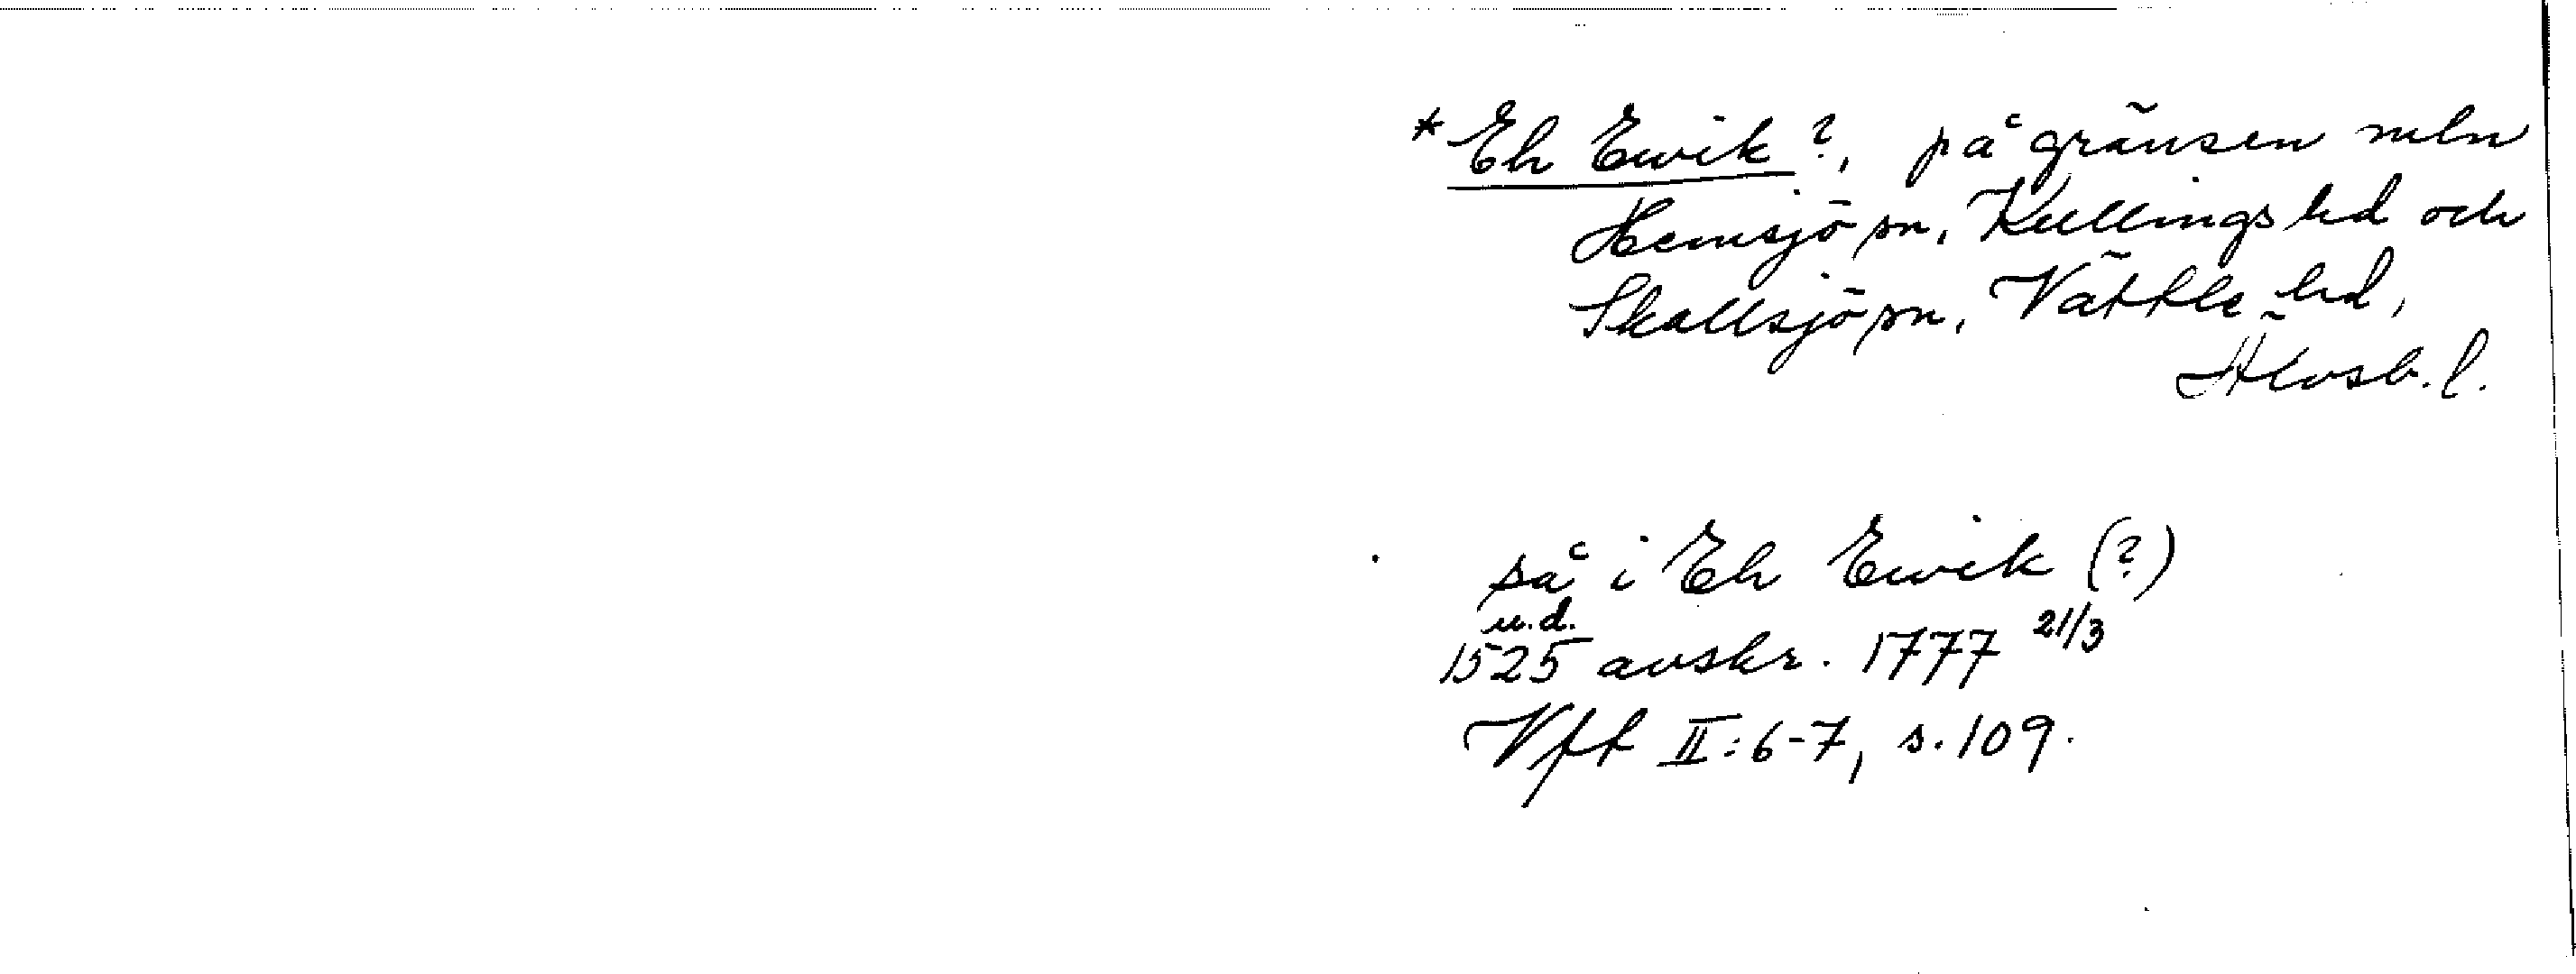 *Eh Ewik?, på gränsen mln
Hemsjö sn, Kullings hd och
Skallsjö sn, Vättle hd,
Älvsb. l.
så i Eh Ewik (?)
u.d.
1525 avskr. 1777 21/3
Vft II:6-7, s.109.